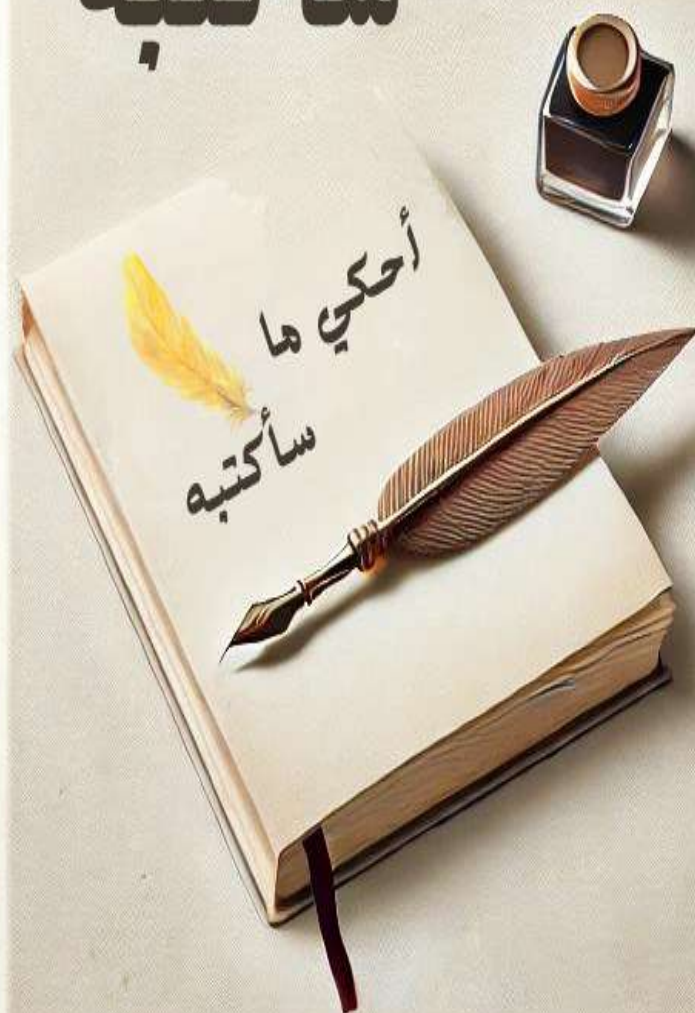 أحكي ما
سأكتبه